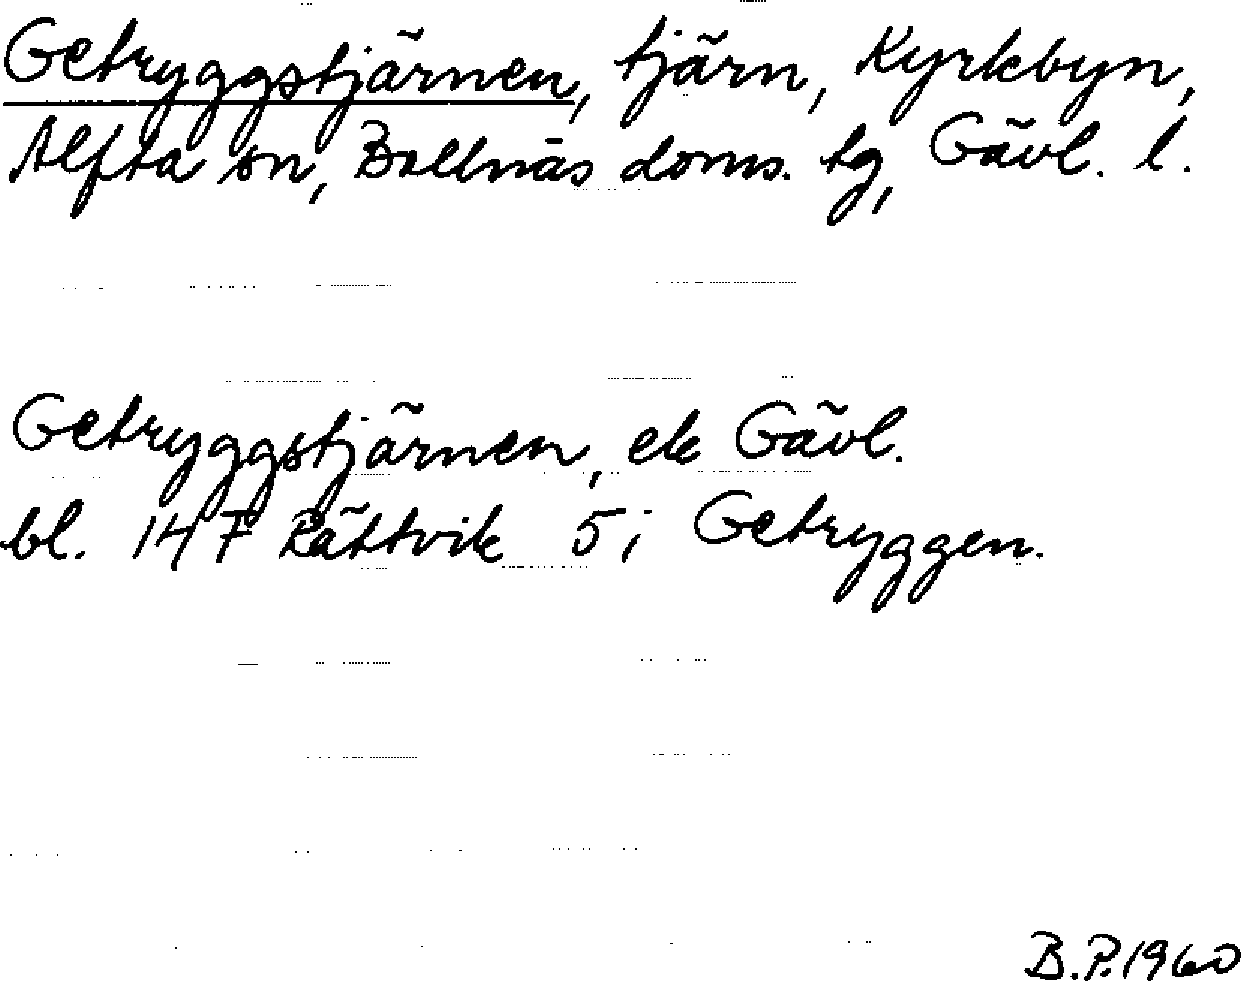 Getryggstjärnen, tjärn, Kyrkbyn,
Alfta sn, Bollnäs doms. tg, Gävl. l.
Getryggstjärnen, ek Gävl.
bl. 147 Rättvik 5 i Getryggen.
B.P. 1960